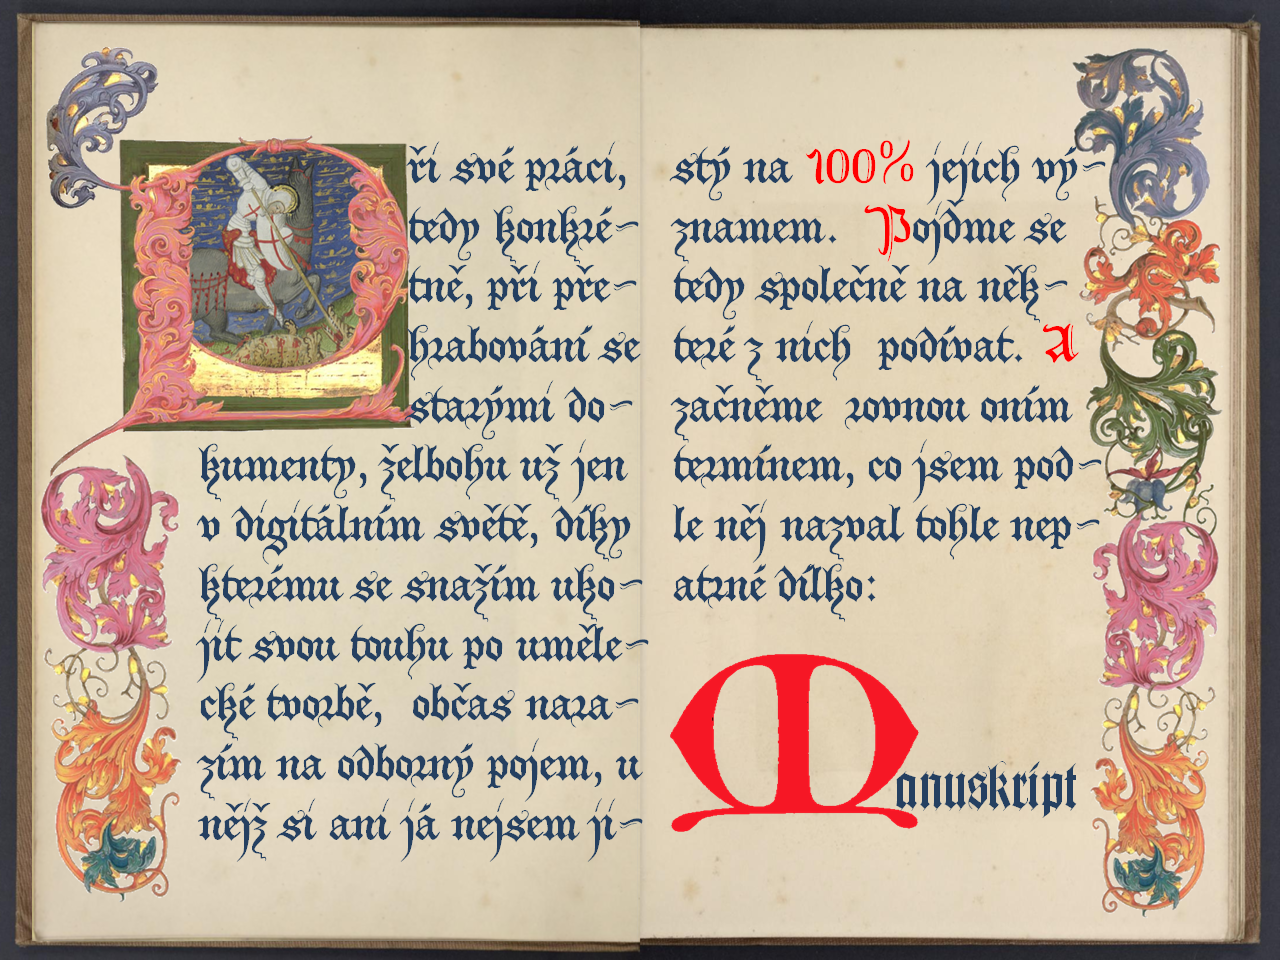 Při své práci,
tedy konkré-
tně, při pře-
hrabování se
starými do-
kumenty, želbohu už jen
v digitálním světě, díky
kterému se snažím uko-
jit svou touhu po uměle-
cké tvorbě, občas nara-
zím na odborný pojem, u
nějž si ani já nejsem ji-
stý na 100% jejich vý-
znamem. Pojďme se
tedy společně na něk-
teré z nich podívat. A
začněme rovnou oním
termínem, co jsem pod-
le něj nazval tohle nep-
atrné dílko:
Manuskript